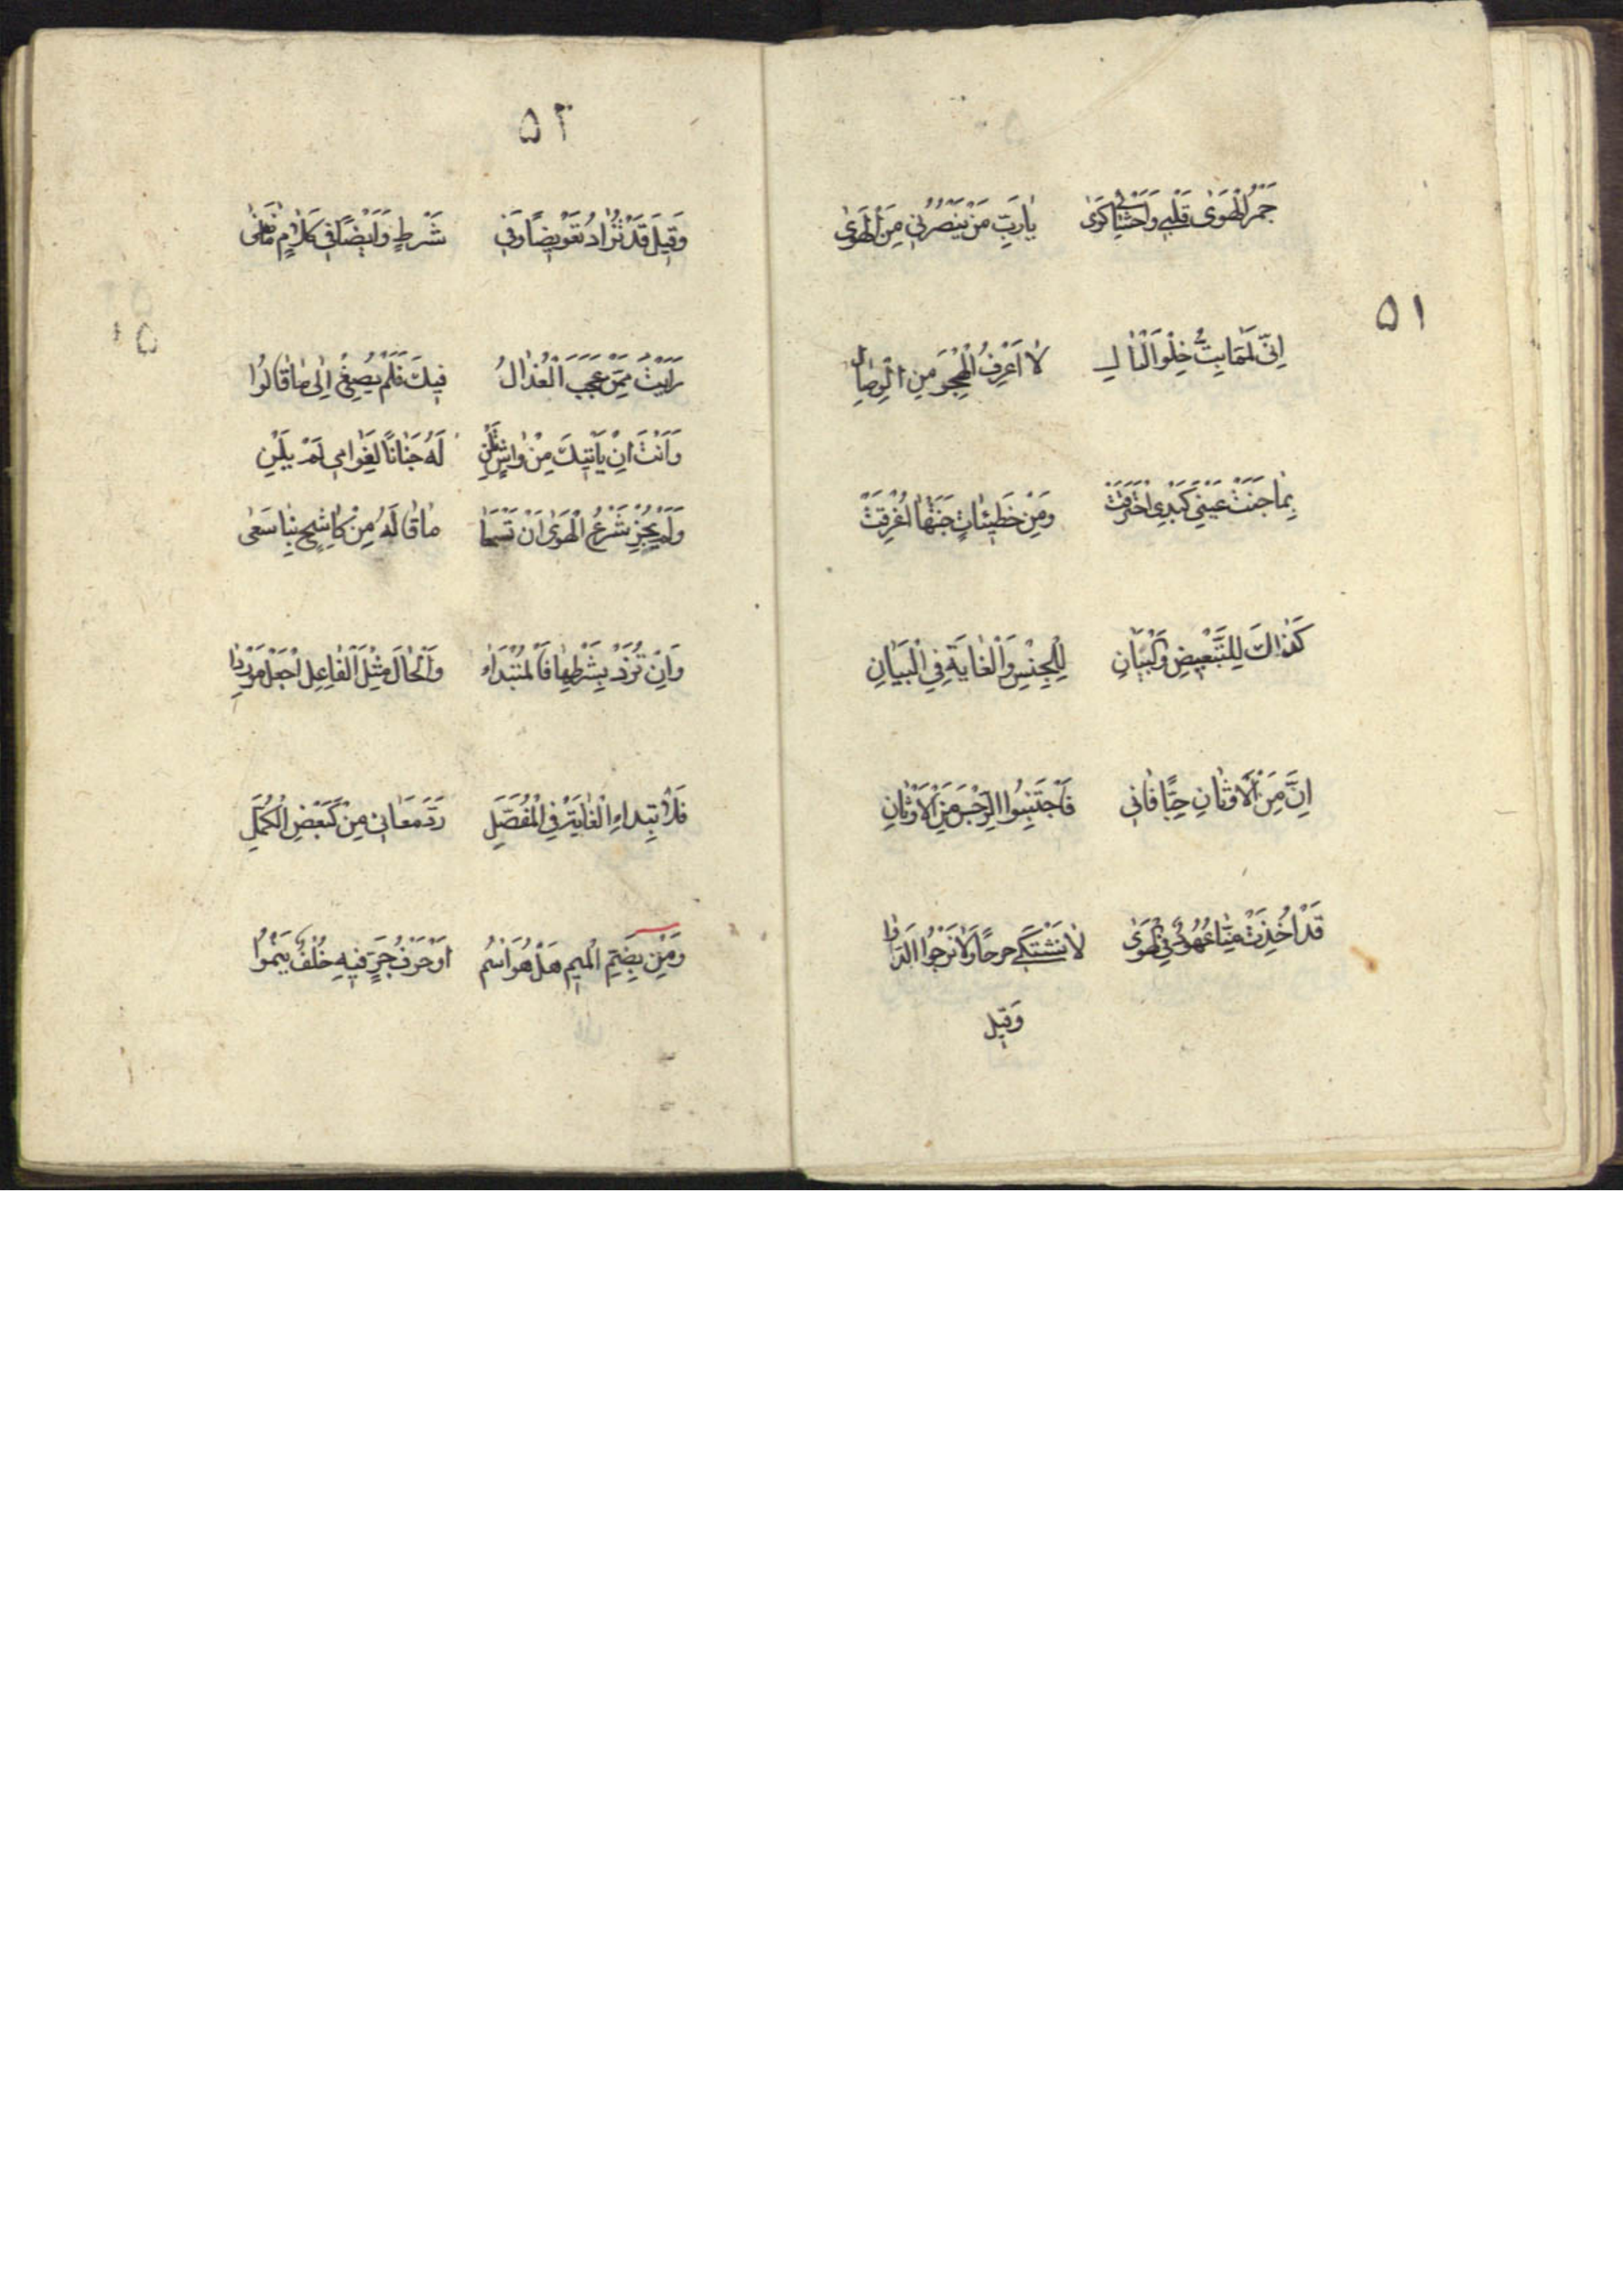 ٥١
جَمْرُ الْهَوٰى قَلْبِي وَاَحْشَائِي كَوٰى يٰارَبِّ مَنْ يَنْصُرُنِي مِنَ الْهَوٰى
اِنِّي لَمَّا بِتُّ خِلْوَ الْبٰالِ لاٰ اَعْرِفُ الْهَجْرَ مِنَ الْوِصٰالِ
بِمٰا جَنَتْ عَيْنِي كَبَدِي احْتَرَقَتْ وَمِنْ خَطِيئٰاتٍ جَنَتْهٰا اُغْرِقَتْ
كَذٰاكَ لِلتَّبْعِيضِ وَالْبَيٰانِ لِلْجِنْسِ وَالْغٰايَةِ فِي الْبَيٰانِ
اِنَّ مِنَ الْاَوْثٰانِ حِبًّا فٰانِي فَاجْتَنِبُوا الرِّجْسَ مِنَ الْاَوْثٰانِ
قَدْ اُخِذَتْ مِنّٰا عُهُودٌ فِي الْهَوٰى لاٰ نَشْتَكِي جرحًا وَلاٰ نَرْجُوا الدَّوٰا
وَقِيلَ
٥٢
وَقِيلَ قَدْ تُزٰادُ تَعْوِيضًا وَفِي شَرْطٍ وَاَيْضًا فِي كَلاٰمٍ
رَاَيْتُ مِمَّنْ عَجَبَ الْعُذّٰالُ فِيكَ فَلَمْ يُصْغِ اِلٰى مٰا قٰالُوا
وَاَنْتَ اِنْ يَأْتِيكَ مِنْ وٰاشٍ تَلِنْ لَهُ جَنٰانًا لِغَرٰامِي لَمْ يَلِنِ
وَلَمْ يُجِزْ شَرْعُ الْهَوٰى اَنْ تَسْمَعٰا مٰا قٰالَهُ مِنْ كٰاشِحٍ بِنٰا سَعٰى
وَاِنْ تُزَدْ بِشَرْطِهٰا فَالْمُبْتَدَاءُ وَالْحٰالَ مِثْلَ الْفٰاعِلِ اجْعَلْ مَوْرِدٰا
فَلاِبْتِدٰاءِ الْغٰايَةِ فِي الْمُفَصَّلِ رَدَّ مَعٰانِي مِنْ كَبَعْضِ الْكُمَّلِ
وَمِنْ بِضَمِّ الْمِيمِ هَلْ هُوَ اسْمُ اَوْ حَرْفُ جَرٍّ فِيهِ خُلْفٌ